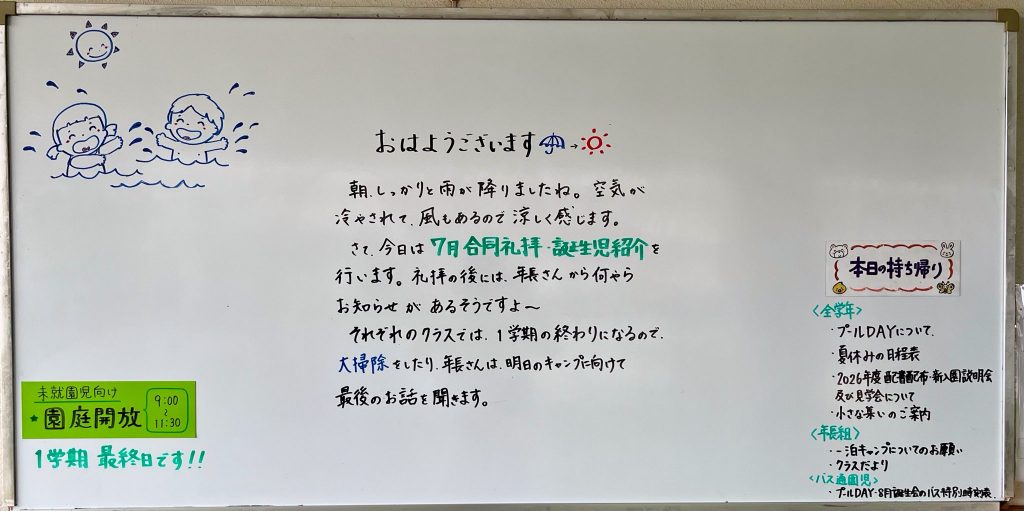 おはようございます
朝、しっかりと雨が降りましたね。空気が
冷やされて、風もあるので涼しく感じます。
さて、今日は7月合同礼拝・誕生児紹介を
行います。礼拝の後には、年長さんから何やら
お知らせがあるそうですよ〜
それぞれのクラスでは、1学期の終わりになるので、
大掃除をしたり、年長さんは、明日のキャンプに向けて
最後のお話を聞きます。
未就園児向け
★園庭開放
9:00
〜
11:30
1学期 最終日です!!
本日の持ち帰り
〈全学年〉
・プールDAYについて、
・夏休みの日程表
・2026年度 配布・新入園説明会
及び見学会について
・小さな集いのご案内
〈年長組〉
・一泊キャンプについてのお願い
・クラスだより
〈バス通園児〉
・プールDAY・8月誕生会のバス特別時定表